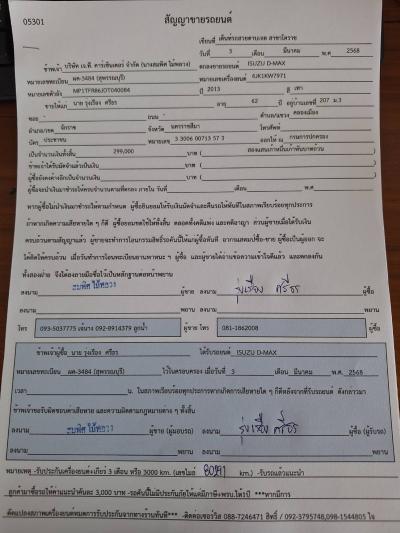 สัญญาขายรถยนต์
05301
เขียนที่ เต็นท์รถสวยตามเจต สาขาโคราช
วันที่ 3 เดือน มีนาคม พ.ศ 2568
ข้าพเจ้า บริษัท เจ.ที. คาร์เซ็นเตอร์ จำกัด (นางสมพิศ ไม้หลวง) ตกลงขายรถยนต์ ISUZU D-MAX
หมายเลขทะเบียน ผค-3484 (สุพรรณบุรี) หมายเลขเครื่องยนต์ 4JK1KW7971
หมายเลขตัวถัง MP1TFR86JDT040084 ปี 2013 สี เทา
ขายให้แก่ นาย รุ่งเรือง ศรีธร อายุ 62 ปี อยู่บ้านเลขที่ 207 ม.3
ซอย - ถนน - ตำบล/แขวง คลองเมือง
อำเภอ/เขต จักราช จังหวัด นครราชสีมา โทรศัพท์
บัตร ประชาชน หมายเลข 3 3006 00713 57 3 ออกให้ ณ กรมการปกครอง
เป็นจำนวนเงินทั้งสิ้น 299,000 บาท ( สองแสนเก้าหมื่นเก้าพันบาทถ้วน )
ข้าพเจ้าได้รับมัดจำแล้วเป็นเงิน บาท ( )
ผู้ซื้อยังคงค้างอีกเป็นจำนวนเงิน บาท ( )
ผู้ซื้อจะนำเงินมาชำระให้ครบจำนวนตามที่ตกลง ภายใน วันที่ เดือน พ.ศ.
หากผู้ซื้อไม่นำเงินมาชำระให้ตามกำหนด ผู้ซื้อยินยอมให้ริบเงินมัดจำและคืนรถให้ทันทีในสภาพเรียบร้อยทุกประการ
ถ้าหากเกิดความเสียหายใด ๆ ก็ดี ผู้ซื้อยอมชดใช้ให้ทั้งสิ้น ตลอดทั้งคดีแพ่ง และคดีอาญา ส่วนผู้ขายเมื่อได้รับเงิน
ครบถ้วนตามสัญญาแล้ว ผู้ขายจะทำการโอนกรรมสิทธิ์รถคันนี้ให้แก่ผู้ซื้อทันที
ทั้งสองฝ่าย จึงได้ลงลายมือชื่อไว้เป็นหลักฐานต่อหน้าพยาน
ลงนาม สมพิศ ไม้หลวง ผู้ขาย ลงนาม รุ่งเรือง ศรีธร ผู้ซื้อ
ลงนาม พยาน ลงนาม พยาน
โทร 093-5037775 เจ๊นาง 092-8914379 ลูกน้ำ ผู้ขาย โทร 081-1862008 ผู้ซื้อ
ข้าพเจ้าผู้ซื้อ นาย รุ่งเรือง ศรีธร ได้รับรถยนต์ ISUZU D-MAX
หมายเลขทะเบียน ผค-3484 (สุพรรณบุรี) ไว้ในครอบครอง เมื่อวันที่ 3 เดือน มีนาคม พ.ศ. 2568
เวลา น. ในสภาพเรียบร้อยทุกประการหากเกิดการเสียหายใด ๆ ก็ดีหลังจากที่รับรถยนต์ ดังกล่าวมา
ข้าพเจ้าขอรับผิดชอบค่าเสียหาย และความผิดตามกฎหมายต่าง ๆ ทั้งสิ้น
ลงนาม สมพิศ ไม้หลวง ผู้ขาย (ผู้มอบรถ) ลงนาม รุ่งเรือง ศรีธร ผู้ซื้อ (ผู้รับรถ)
ลงนาม พยาน ลงนาม พยาน
หมายเหตุ -รับประกันเครื่องยนต์+เกียร์ 3 เดือน หรือ 3000 km. (เลขไมล์ km.) -รับรถแล้วแนะนำ
ลูกค้ามาซื้อรถให้ค่าแนะนำคันละ 3,000 บาท -รถคันนี้ไม่มีประกันภัยให้แต่มีภาษี+พรบ.ให้1ปี ***หากมีการ
ดัดแปลงสภาพเครื่องยนต์หมดการรับประกันจากทางร้านทันที*** -ติดต่อเซอร์วิส 088-7246471 สิทธิ์ / 092-3795748,098-1544805 ไจ๋